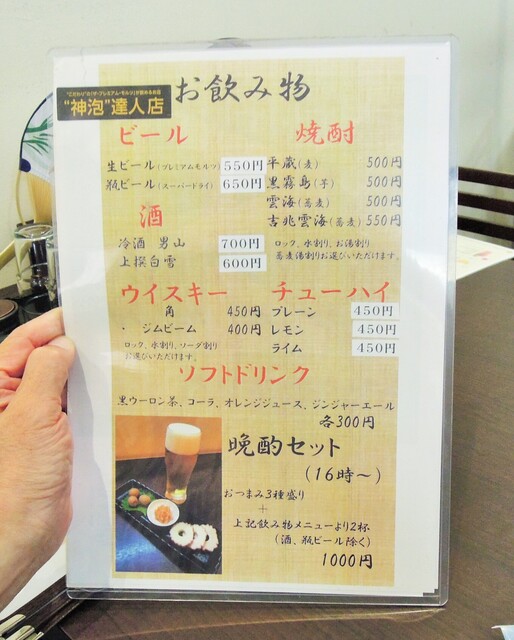 "こだわり"の「ザ・プレミアム・モルツ」が飲めるお店
"神泡"達人店
お飲み物
ビール
生ビール(プレミアムモルツ) 550円
瓶ビール(スーパードライ) 650円
酒
冷酒 男山 700円
上撰白雪 600円
ウイスキー
角 450円
・ ジムビーム 400円
ロック、水割り、ソーダ割り
お選びいただけます。
焼酎
平蔵(麦) 500円
黒霧島(芋) 500円
雲海(蕎麦) 500円
吉兆雲海(蕎麦) 550円
ロック、水割り、お湯割り
蕎麦湯割りお選びいただけます。
チューハイ
プレーン 450円
レモン 450円
ライム 450円
ソフトドリンク
黒ウーロン茶、コーラ、オレンジジュース、ジンジャーエール
各300円
晩酌セット
(16時~)
おつまみ3種盛り
+
上記飲み物メニューより2杯
(酒、瓶ビール除く)
1000円